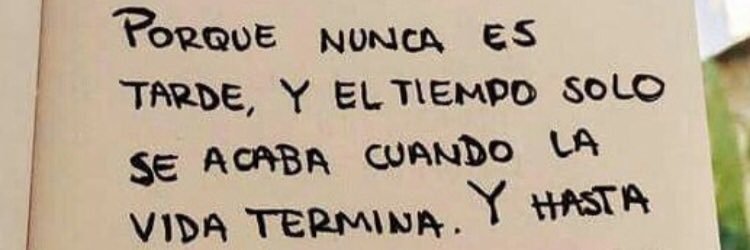 PORQUE NUNCA ES
TARDE, Y EL TIEMPO SOLO
SE ACABA CUANDO LA
VIDA TERMINA. Y HASTA